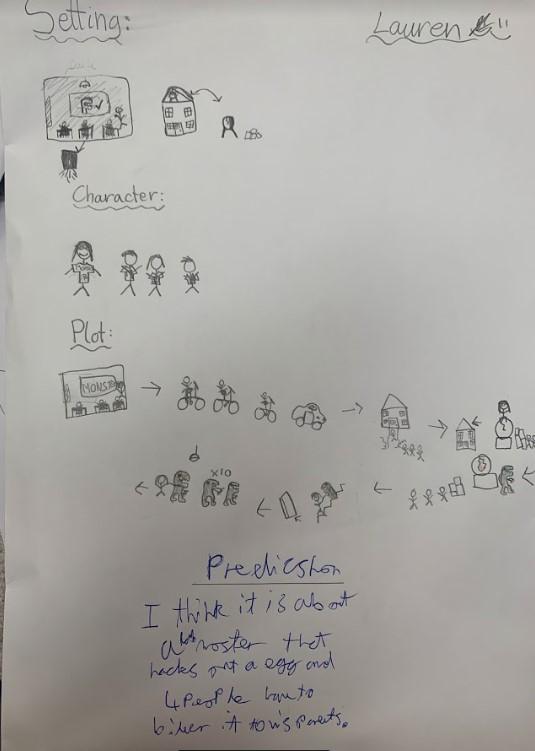 Setting:
Lauren
Character:
Plot:
MONST
x10
Predicshon
I think it is about
a moster that
hacks out a egg and
4 People have to
to his Parents.